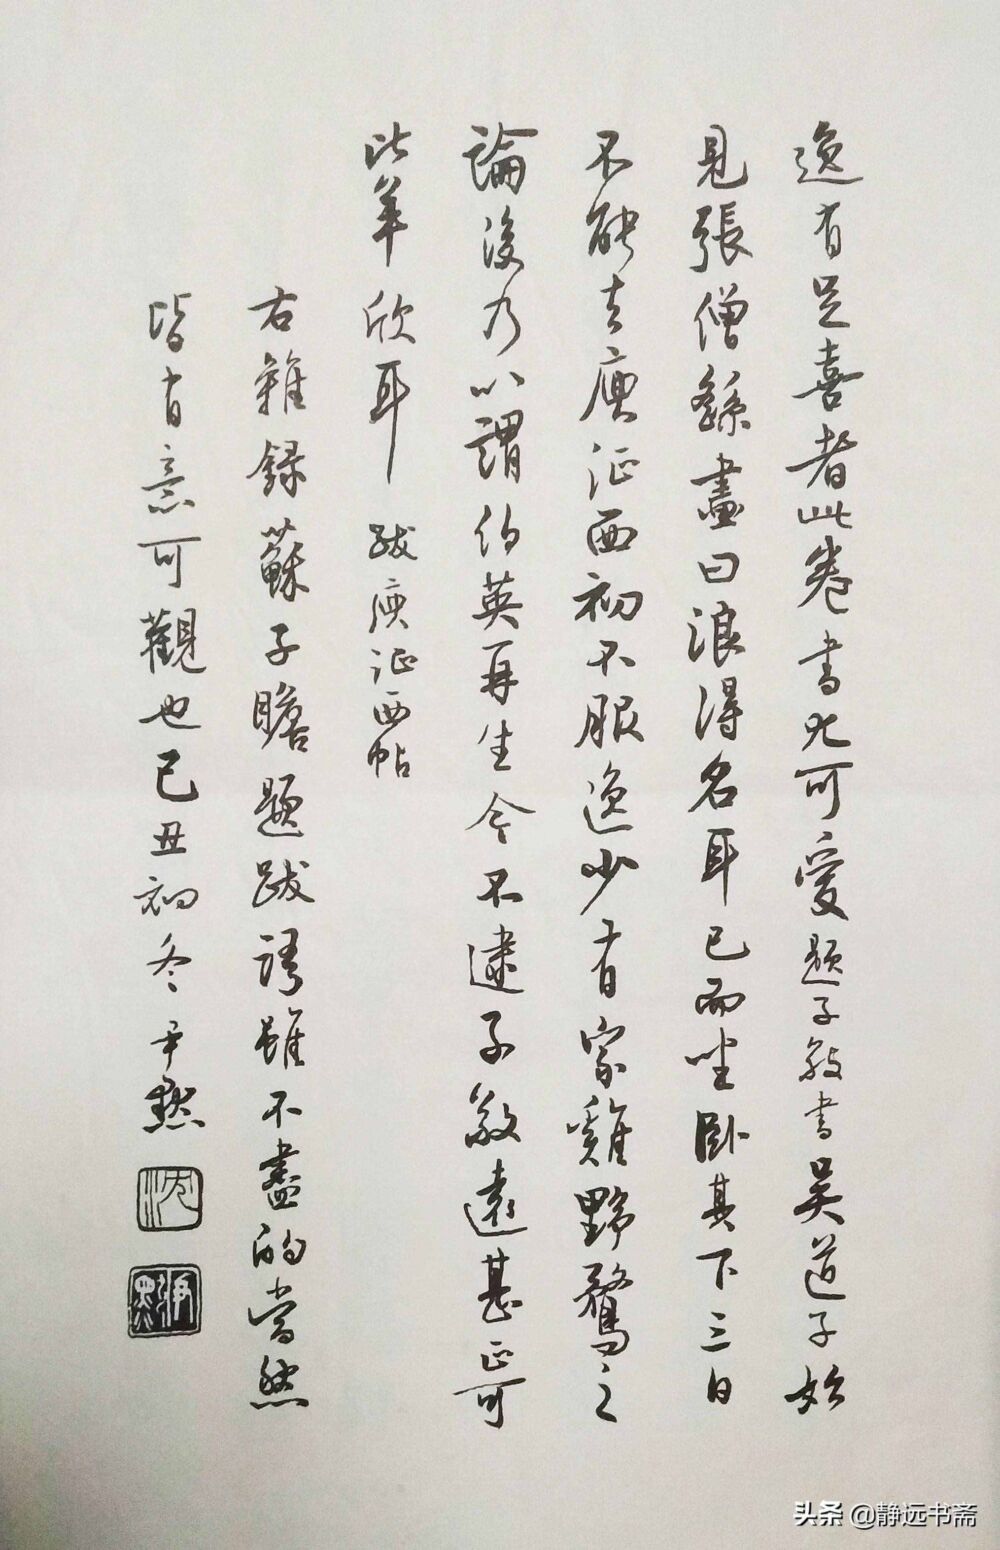 逸有足喜者此卷書尤可愛題子敬書吳道子始
見張僧繇畫曰浪得名耳已而坐臥其下三日
不能去庾征西初不服逸少有家雞野鶩之
論後乃以謂伯英再生今不逮子敬遠甚正可
比羊欣耳 跋庾征西帖
右雜録蘇子瞻題跋語雖不盡的當然
皆有意可觀也己丑初冬尹默
沈
尹默
头条 @静远书斋